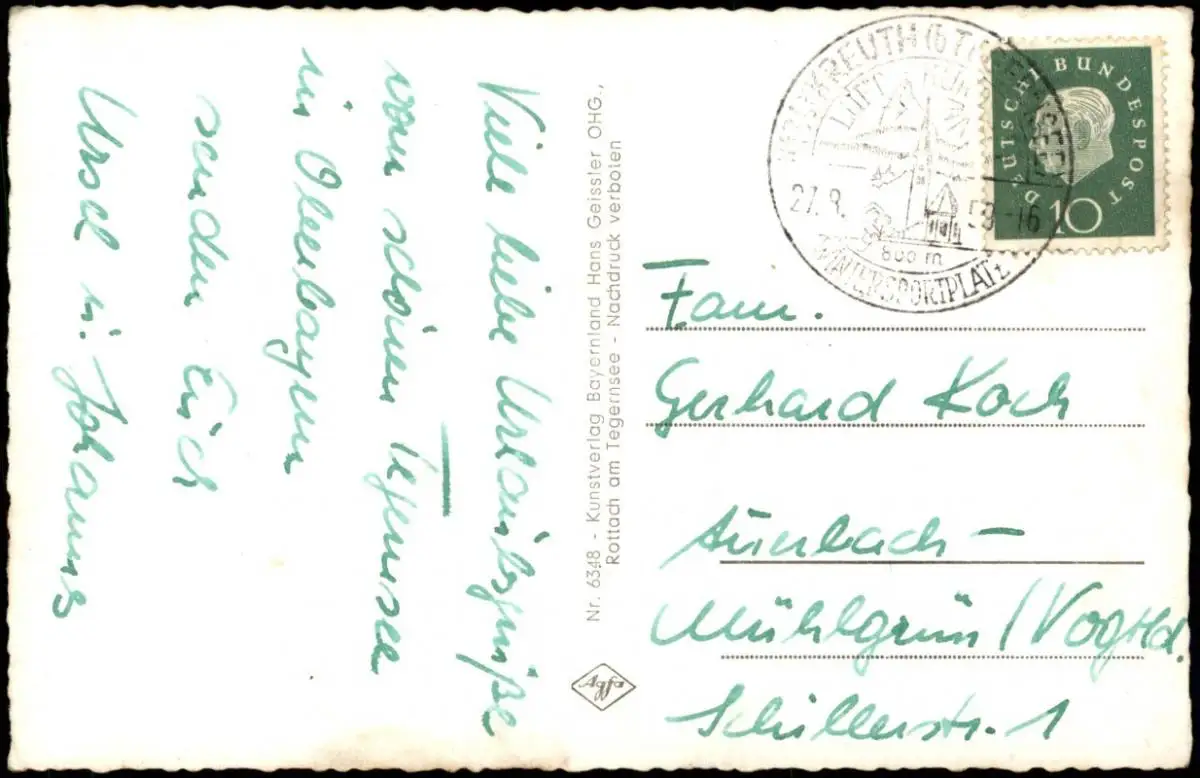 Viele liebe Urlaubsgrüße
vom schönen Tegernsee
in Oberbayern
senden Euch
Ursel u. Johannes
Nr. 6348 - Kunstverlag Bayernland Hans Geissler OHG.,
Rottach am Tegernsee - Nachdruck verboten
Agfa
KREUTH (b. T
LUFT
27.8.
59-16
800 m
WINTERSPORTPLATZ
DEUTSCHE BUNDESPOST
10
Fam.
Gerhard Koch
Auerbach-
Mühlgrün/Vogtld.
Schillerstr. 1